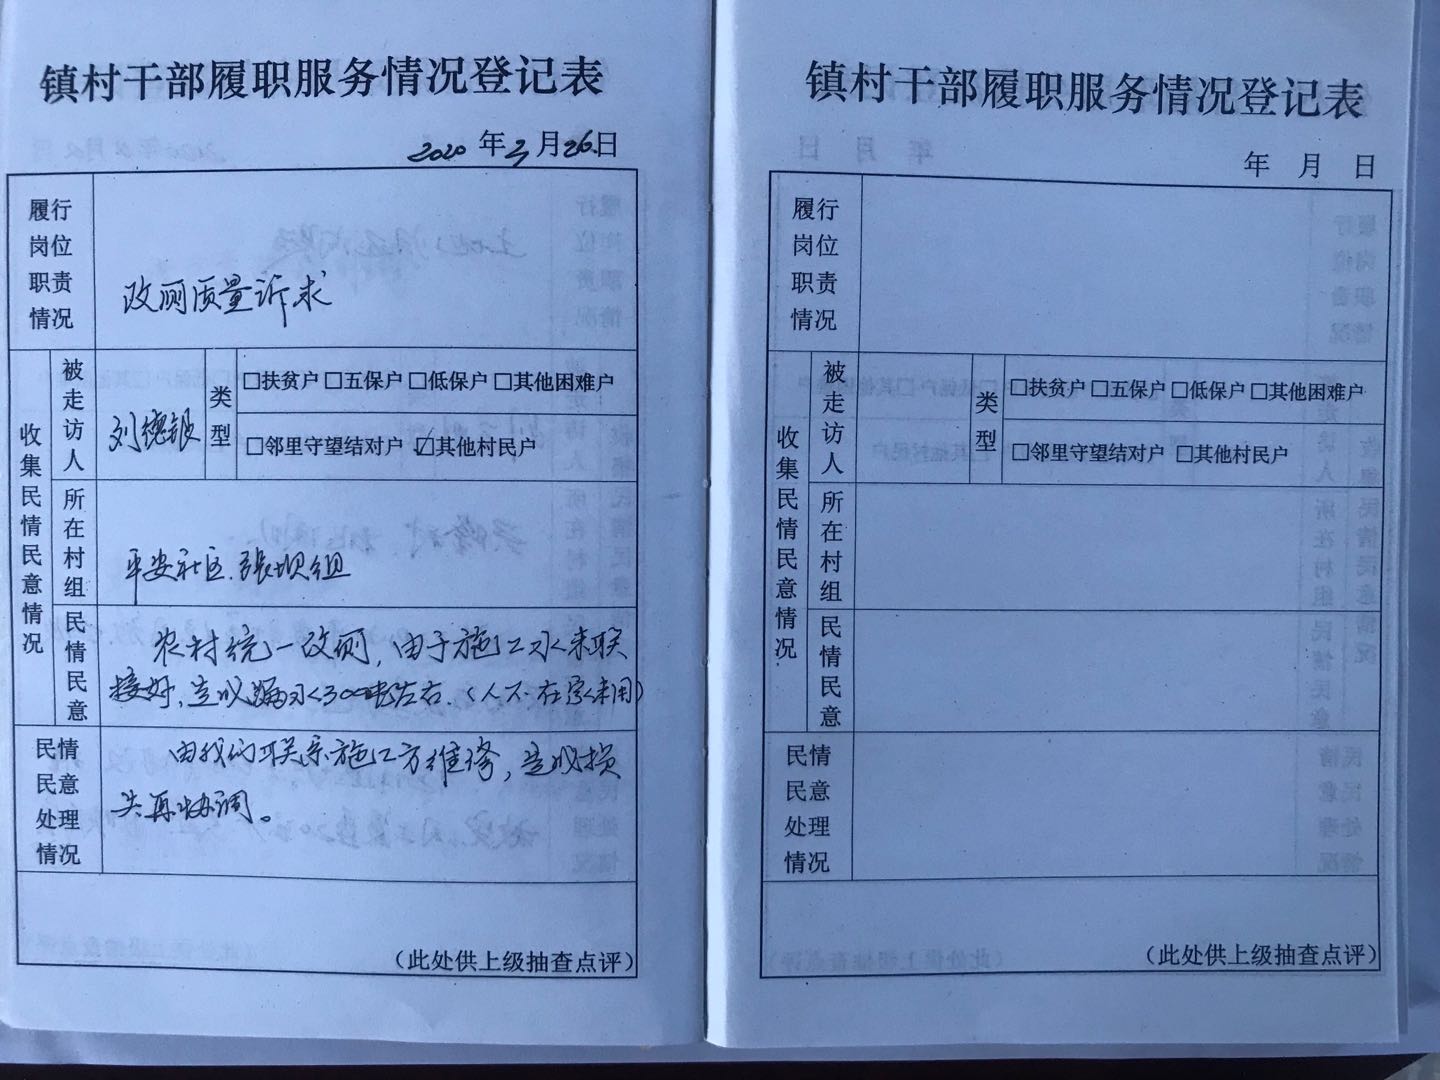 镇村干部履职服务情况登记表
2020年3月26日
履行
岗位
职责
情况
改厕质量诉求
收集民情民意情况
被走访人
刘德银
类型
□扶贫户□五保户□低保户□其他困难户
□邻里守望结对户 ☑其他村民户
所在村组
平安社区.张坝组
民情民意
农村统一改厕,由于施工水未联
接好,造成漏水300吨左右.(人不在家未用)
民情
民意
处理
情况
由我们联系施工方维修,造成损
失再协调。
(此处供上级抽查点评)
镇村干部履职服务情况登记表
年 月 日
履行
岗位
职责
情况
收集民情民意情况
被走访人
类型
□扶贫户□五保户□低保户□其他困难户
□邻里守望结对户 □其他村民户
所在村组
民情民意
民情
民意
处理
情况
(此处供上级抽查点评)